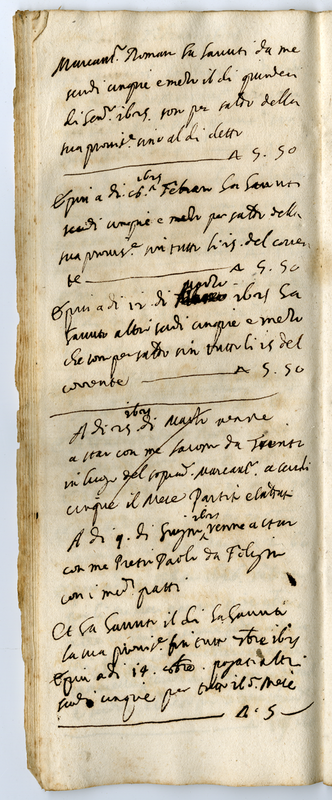 Marcant.o Romano ha havuti da me
scudi cinque e mezo il di quindeci
di Gen.o 1625 son per saldo della
sua provis.e sino al di detto
5. 50
E piu a di 26.o Febraro 1625 ha havuti
scudi cinque e mezo per saldo della
sua provis.e per tutto li 15. del corren
te 5. 50
E piu a di 12. di marzo 1625 ha
havuto altri scudi cinque e mezo
che son per saldo sin tutto li 15 del
corrente 5. 50
A di 25. di Marzo 1625 venne
a star con me da Trento
in luogo del sopra.o Marcant.o a scudi
cinque il Mese Partito
A di 9. di Giugno 1625 venne a star
con me Pietro Paolo da Foligni
con i med.i patti
Et ha havuti il di
la sua provis.e per tutto 7bre 1625
E piu a di 14. 8bre. altri
scudi cinque per tutto il d.o Mese
5